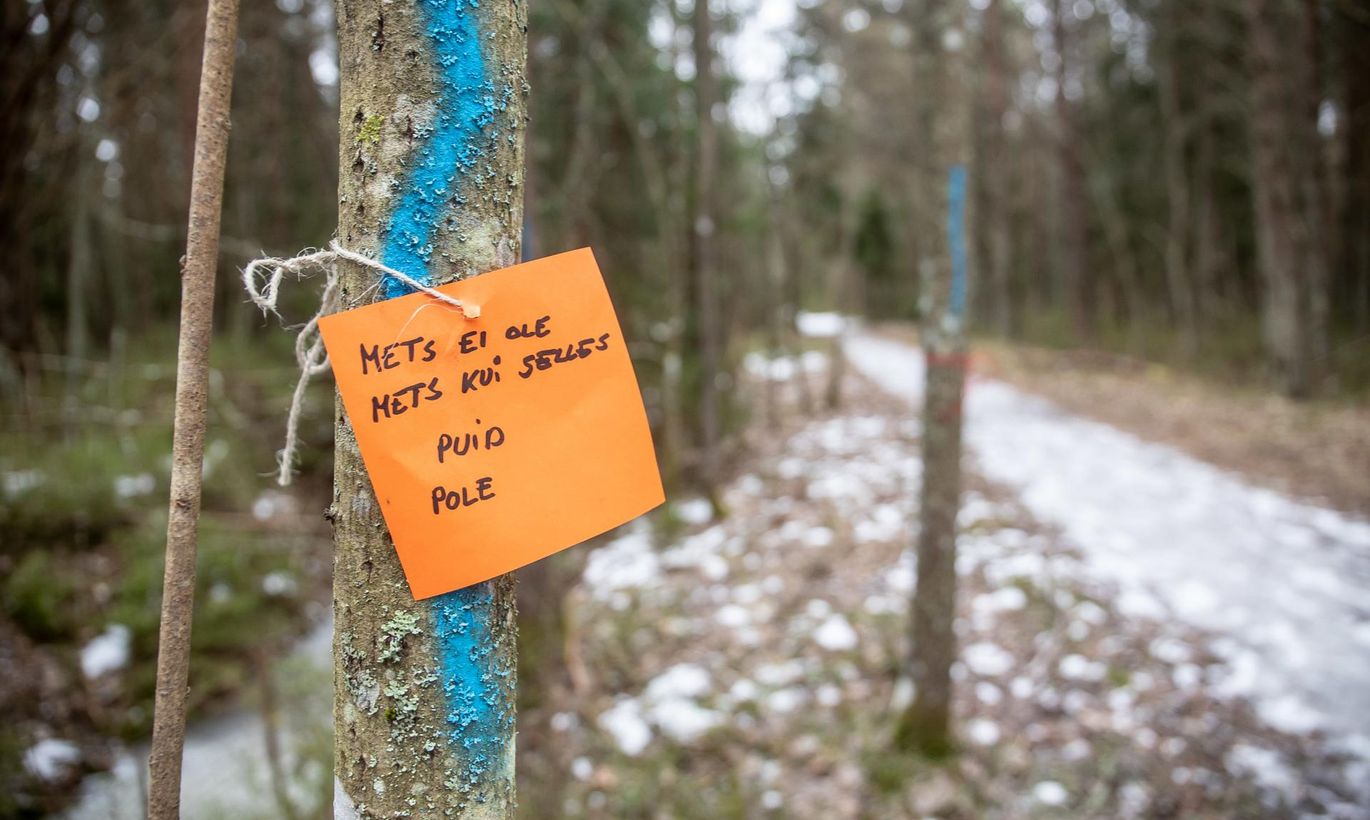 METS EI OLE
METS KUI SELLES
PUID
POLE